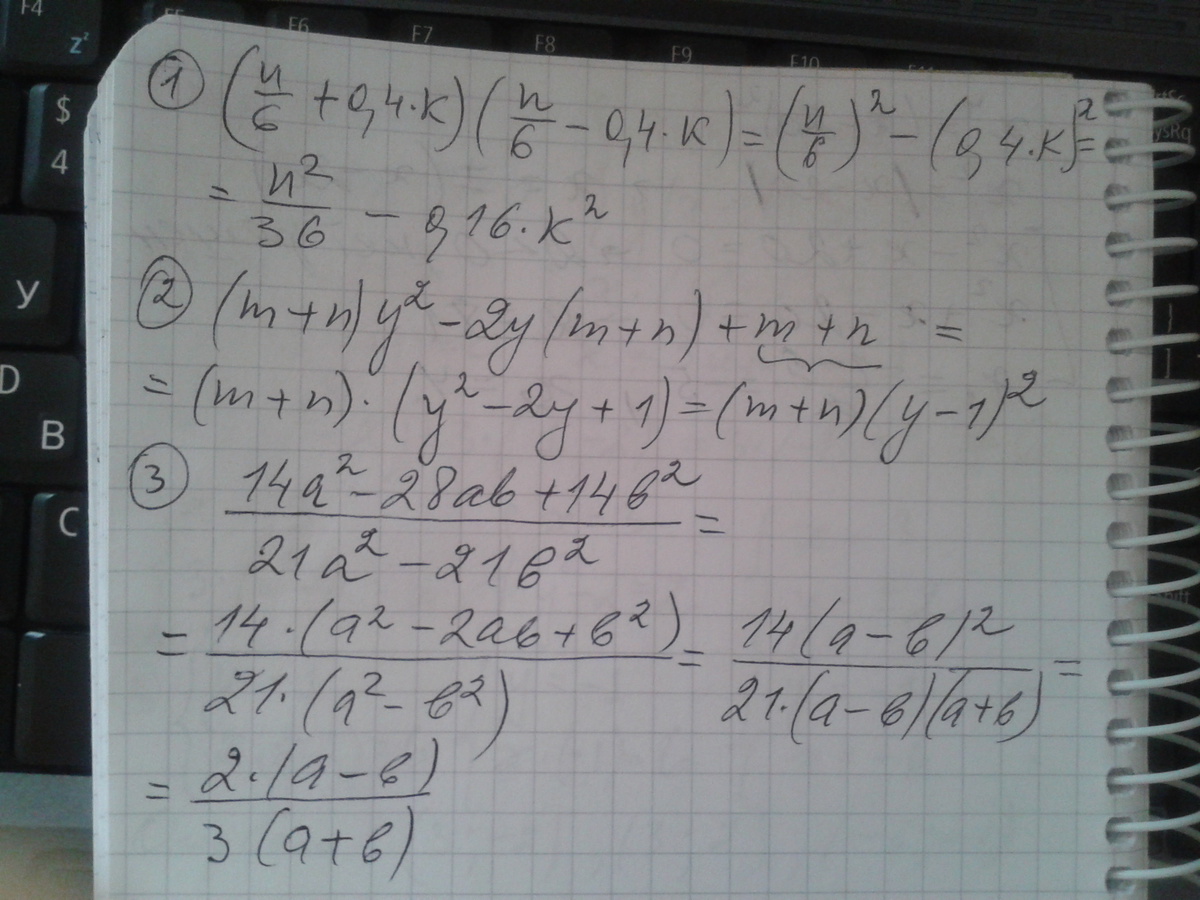 F4 F5 F6 F7 F8 F9 F10
z²
$
4
У
D
В
С
① (n/6 + 0,4·к)(n/6 − 0,4·к) = (n/6)² − (0,4·к)² =
= n²/36 − 0,16·к²
② (m+n)y² − 2y(m+n) + m+n =
= (m+n)·(y² − 2y + 1) = (m+n)(y−1)²
③ (14a² − 28ab + 14b²)/(21a² − 21b²) =
= 14·(a² − 2ab + b²)/21·(a² − b²) = 14(a−b)²/21·(a−b)(a+b) =
= 2·(a−b)/3(a+b)